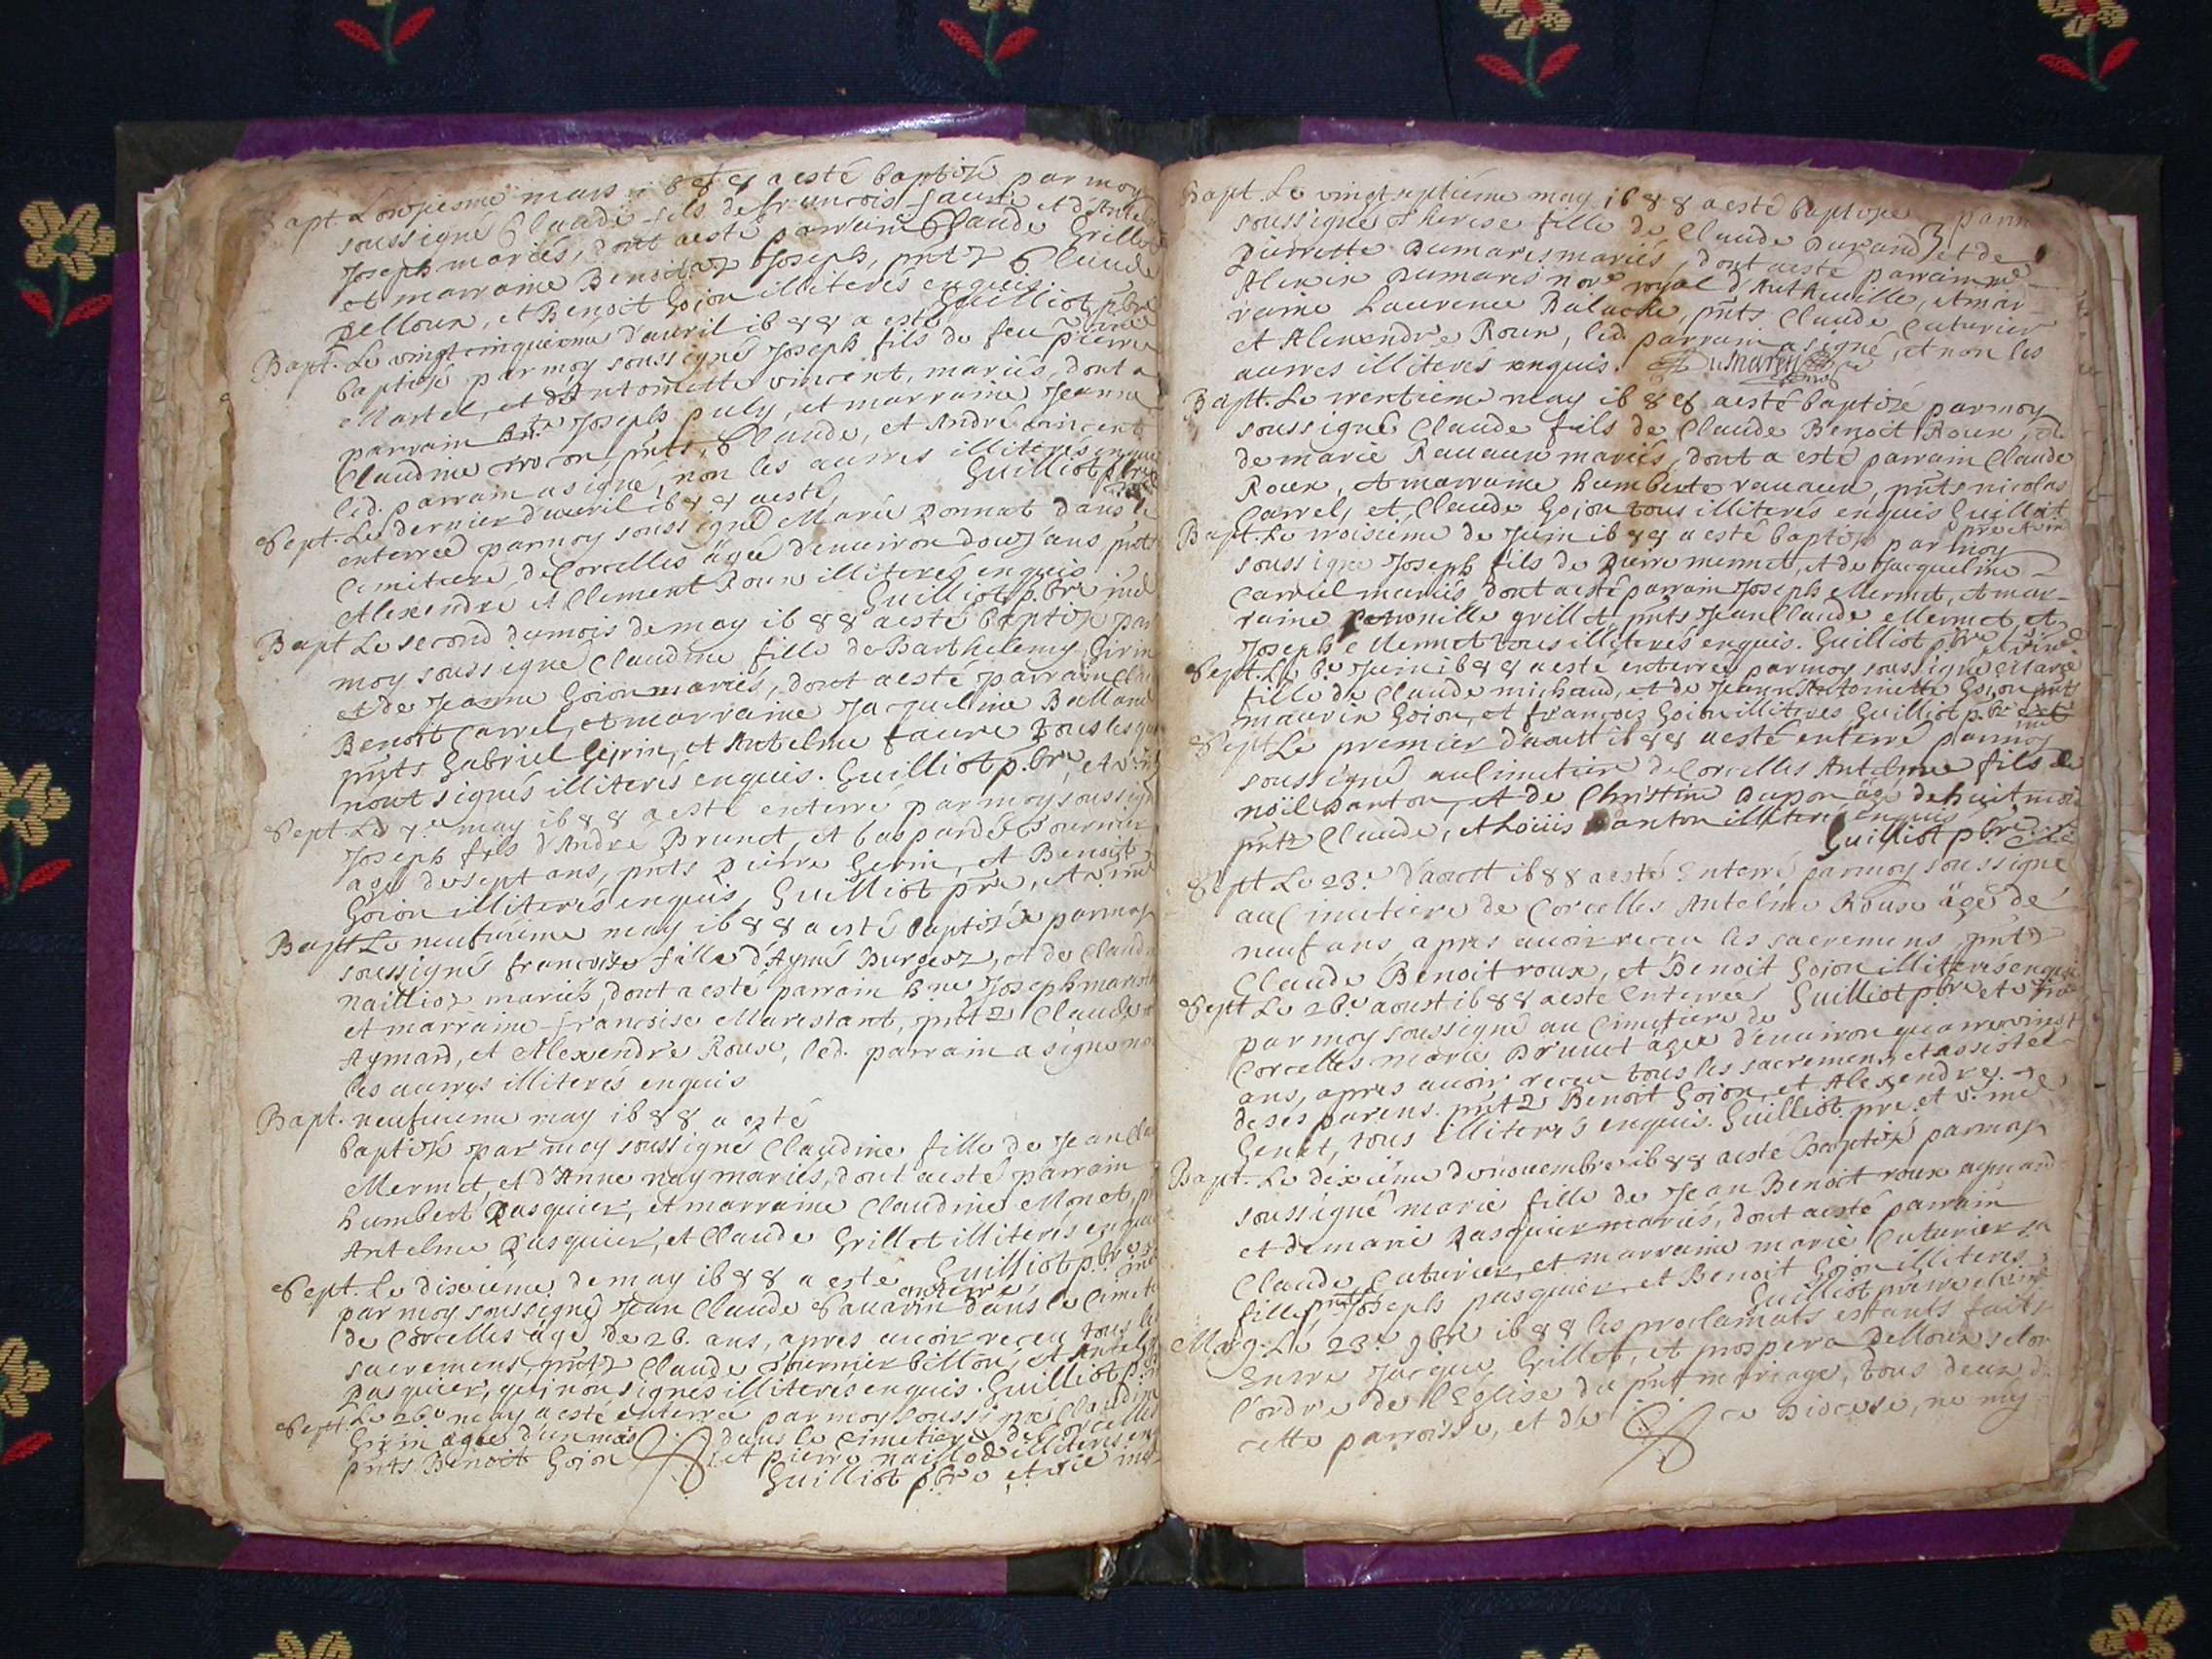 Bapt. L'onziesme mars 1688 a esté baptisé par moy
soussigné Claude fils de francois faure et d'Antel
Joseph mariés, dont a esté parrain Claude Grillet
et marraine Benoitaz Joseph, pntz Claude
pelloux, et Benoit Goion illiterés enquis
Guilliot pbre
Bapt. Le vingt cinquieme d'auril 1688 a esté
baptisé par moy soussigné Joseph fils de feu pierre
Martel, et d'Antoinette vincent, mariés, dont a
parrain hn.e Joseph puly, et marraine Jeanne
Claudine, pnts, Claude, et André vincent
led. parrain a signé, non les autres illiterés enquis
Guilliot pbre
Sept. Le dernier d'auril 1688 a esté
enterreé par moy soussigné Marie Donnat dans le
Cimitiere de Corcelles âgée d'enuiron douz ans, pnts
Alexendre et Clement Roux illiterés enquis
Guilliot p.bre
Bapt Le second du mois de may 1688 a esté baptisé par
moy soussigné Claudine fille de Barthelemy Girin
et de Jeanne Goion mariés, dont a esté parrain
Benoit Carrel, et marraine Jacqueline Balland
pnts Gabriel Girin, et Antelme faure tous lesque
n'ont signés illiterés enquis. Guilliot p.bre, et
Sept. Le 7.e may 1688 a esté enterré par moy soussign
Joseph fils d'André Brunet, et Gasparde Fournier
agé de sept ans, pnts Pierre Gerin, et Benoit
Goion illiterés enquis, Guilliot pre, et
Bapt Le neufuieme may 1688 a esté baptisée par moy
soussigné francoise fille d'Aymé Burgoz, et de Claud
naillioz mariés, dont a esté parrain hne Joseph
et marraine francoise Marestant, pntz Claude
Aymard, et Alexendre Roux, led. parrain a signé no
les autres illiterés enquis
Bapt. neufuieme may 1688 a esté
baptisé par moy soussigné Claudine fille de Jean Cla
Mermet, et d'Anne nay mariés, dont a esté parrain
humbert Pasquier, et marraine Claudine Monet, p
Antelme Pasquier, et Claude Grillet illiterés enqui
Guilliot p.bre
Sept. Le dixieme de may 1688 a esté enterré
par moy soussigné Jean Claude Sauarin dans le Cimeti
de Corcelles agé de 26. ans, apres auoir receu tous les
sacremens, pntz Claude Fournier billon, et Antelm
Pasquier, qui n'on signés illiterés enquis. Guilliot p.
Sept. Le 26.e may a esté enterreé par moy soussigné Claudine
Girin agée d'un mois dans le cimetiere de Corcelles
pnts Benoit Goion et pierre naillod illiterés en
Guilliot pbre et vic
Bapt. Le vingt septieme may 1688 a esté baptisée par m
soussigné Therese fille de Claude Durand, et de
Pierrette Dumarest mariés, dont a esté parrain
Alexix Dumarest no.re royal d'Anthuille, et mar-
raine Laurence Balache, pnts Claude Cuturier
et Alexendre Roux, led. parrain a signé, et non les
autres illiterés enquis. Dumarest
Bapt. Le trentieme may 1688 a esté baptizé par moy
soussigné Claude fils de Claude Benoit Roux, et
de marie Rauaux mariés, dont a esté parrain Claude
Roux, et marraine humberte rauaux, pnts nicolas
Carrel, et Claude Goion tous illiterés enquis Guilliot
pre et
Bapt. Le troisieme de Juin 1688 a esté baptisé par moy
soussigné Joseph fils de Pierre mermet, et de Jacqueline
Carrel mariés, dont a esté parrain Joseph Mermet, et mar-
raine petronille grillet, pnts Jean Claude Mermet, et
Joseph Mermet tous illiterés enquis. Guilliot p.bre
Sept. Le 6.e Juin 1688 a esté enterreé par moy soussigné Marie
fille de Claude michaud, et de Jeanne Antoinette Goion pnts
maurix Goion, et francoiz Goion illiteres Guilliot p.br
Sept Le premier d'aoust 1688 a esté enterré par moy
soussigné au Cimetiere de Corcelles Antelme fils de
noël Danton, et de Christine Dupon agé de huit mois
pntz Claude, et Loüis Danton illiterés enquis
Guilliot pbre
Sept Le 23.e d'aoust 1688 a esté Enterré par moy soussigné
au Cimetiere de Corcelles Antelme Roux âgé de
neuf ans, apres auoir receu les sacremens, pntz
Claude Benoit roux, et Benoit Goion illiterés enquis
Guilliot pbre et
Sept Le 26.e aoust 1688 a esté Enterreé
par moy soussigné au Cimetiere de
Corcelles marie Brunet agée d'enuiron quatre vingt
ans, apres auoir receu tous les sacremens, et assistée
de ses parens. pntz Benoit Goion, et Alexendre
Genet, tous illiterés enquis. Guilliot. pre. et v.
Bapt. Le dixiéme de nouembre 1688 a esté Baptisé par moy
soussigné marie fille de Jean Benoit roux aymard
et de marie Pasquier mariés, dont a esté parrain
Claude Cuturier, et marraine marie Cuturier sa
fille, pnts Joseph pasquier, et Benoit Goion illiterés
Guilliot
Marg. Le 23.e 9bre 1688 les proclamats estants faits
Entre Jacque Grillet, et prospera Pelloux selon
l'ordre de l'Eglise du pnt mariage, tous deux de
cette parroisse, et de ce Diocese, ne my